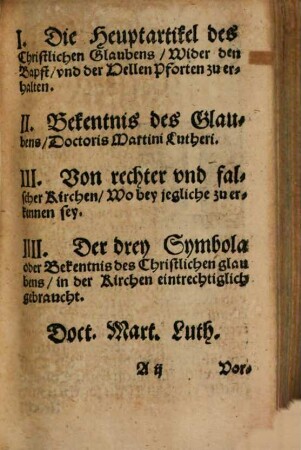 I. Die Heuptartikel des
Christlichen Glaubens / Wider den
Bapst / vnd der Hellen Pforten zu er-
halten.
II. Bekentnis des Glau-
bens / Doctoris Martini Lutheri.
III. Von rechter vnd fal-
scher Kirchen / Wo bey jegliche zu er-
kennen sey.
IIII. Der drey Symbola
oder Bekentnis des Christlichen glau
bens / in der Kirchen eintrechtiglich
gebraucht.
Doct. Mart. Luth.
A ij Vor-